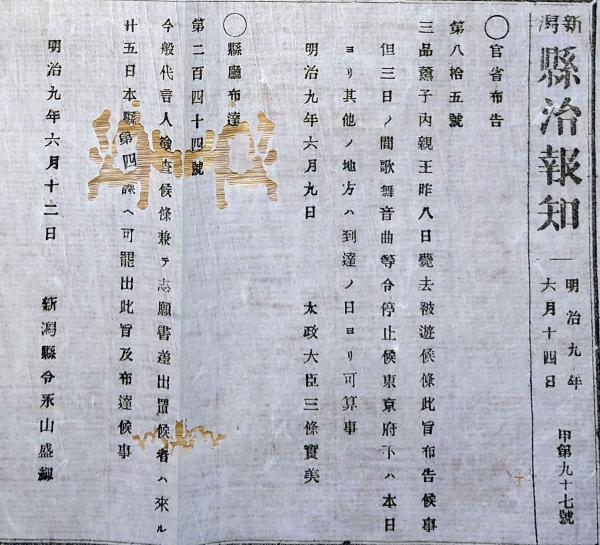 新潟縣治報知
明治九年
六月十四日
甲第九十七號
◯官省布告
第八拾五號
三品薰子內親王昨八日薨去被遊候條此旨布告候事
但三日ノ間歌舞音曲等令停止候東京府下ハ本日
ヨリ其他ノ地方ハ到達ノ日ヨリ可算事
明治九年六月九日
太政大臣三條實美
◯縣廳布達
第二百四十四號
今般代言人檢查候條兼テ志願書差出置候者ハ來ル
廿五日本縣第四課ヘ可罷出此旨及布達候事
明治九年六月十二日
新潟縣令永山盛輝